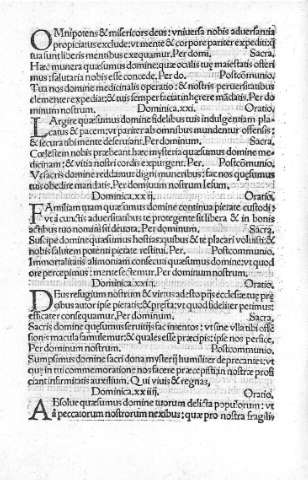 OMnipotens & misericors deus: vniuersa nobis aduersantia
propiciatus exclude: vt mente & corpore pariter expediti: q̄
tua sunt liberis mentibus exequamur. Per domi. Sacra.
Haec munera quæsumus domine: quæ oculis tuę maiestatis offeri
mus: salutaria nobis esse concede. Per do. Postcōmunio.
Tua nos domine medicinalis operatio: & nostris peruersitatibus
clementer expediat: & tuis semper faciat inhęrere mādatis. Per do
minum nostrum. Dominica.xxi. Oratio.
LArgire quæsumus domine fidelibus tuis indulgentiam pla
catus & pacem: vt pariter ab omnibus mundentur offensis:
& secura tibi mente deseruiant. Per dominum. Sacra.
Cœlestem nobis præbeant hæc mysteria quæsumus domine me
dicinam: & vitia nostri cordis expurgent. Per. Postcōmunio.
Vt sacris domine reddamur digni muneribus: fac nos quęsumus
tuis obedire mandatis. Per dominum nostrum Iesum.
Dominica.xxij. Oratio.
FAmiliam tuam quæsumus domine continua pietate custodi:
vt a cunctis aduersitatibus te protegente sit libera & in bonis
actibus tuo nomini sit deuota. Per dominum. Sacra.
Suscipe domine quæsumus hostias: quibus & te placari voluisti: &
nobis salutem potenti pietate restitui. Per. Postcommunio.
Immortalitatis alimoniam consecuti quæsumus domine: vt quod
ore percepimus: mente sectemur. Per dominum nostrum.
Dominica.xxiij. Oratio.
DEus refugium nostrum & virtus: adesto pijs ecclesiæ tuę pre
cibus autor ipse pietatis: & pręsta: vt quod fideliter petimus:
efficaciter consequamur. Per dominum. Sacra.
Sacris domine quæsumus seruitijs facientos: vt sine vllatibi offē
sionis macula famulemur: & quales esse præcipis: ipse nos perfice.
Per dominum nostrum. Postcommunio.
Sumpsimus domine sacri dona mysterij humiliter deprecantes: vt
que in tui commemoratione nos facere præcepisti: in nostræ profi
ciant infirmitatis auxilium. Qui viuis & regnas,
Dominica.xxiiij. Oratio.
ABsolue quæsumus domine tuorum delicta populorum: vt
a peccatorum nostrorum nexibus: quæ pro nostra fragilit